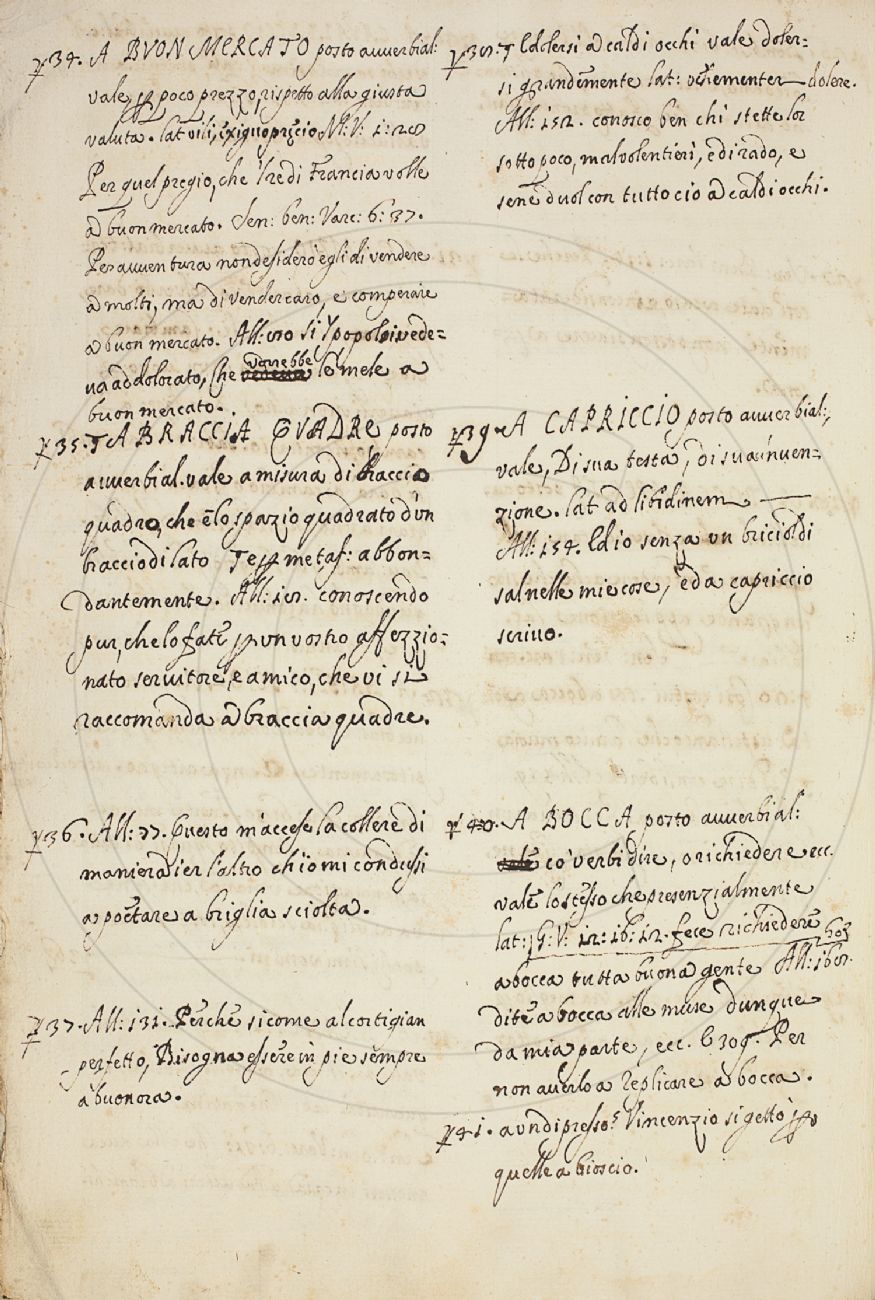 34. A BVON MERCATO posto avverbial:
vale p poco prezzo, rispetto alla giusta
valuta. lat vili, exiguo precio M: V: 1: 28
Per quel pregio, che 'l re di Francia volle
a buon mercato. Sen: ben: Varc: 6: 37.
Per avventura non desiderò egli di vendere
a molti, ma di vender caro, e comperare
a buon mercato. All: 
ua addolorato, Che vorrebbe le mele a
buon mercato.
35. T A BRACCIA QVADRE posto
avverbial. vale a misura di braccio
quadro, che è lo spazio quadrato d'ũn
braccio di lato T e p metaf: abbon=
dantemente. All: conoscendo
pur, che lo fate p vn vostro affezzio=
nato servitore, e amico, che vi si
raccomanda a braccia quadre.
36. All: 77. Questo m'accese la collere di
maniera ier l'altro ch'io mi condussi
a poetare a briglia sciolta.
37. All: 131. Perche sicome al cortigian
perfetto, Bisogna essere in pie sempre
a buonora.
38. T E dolersi a caldi occhi vale doler=
si grandemente lat: vehementer dolere.
All: 152. conosco ben chi stette lor
sotto poco, malvolentieri, e di rado, e
sene duol con tutto cio a caldi occhi.
39. A CAPRICCIO posto avverbial:,
vale, Di sua testa, di sua inven=
zione. lat ad libidinem
All: 154. Ed io senza un bricciol di
sal nelle mie cose, e da capriccio
scrivo.
40. A BOCCA posto avverbial:
co' verbi dire, o richiedere ecc.
vale lo stesso che presenzialmente
lat: G: V: 12: 16: 12. fece richiedere
a bocca tutta buona gente All:
dite a bocca alle muse dunque
da mia parte, ecc. E 309. Per
non averlo a replicare a bocca.
41. a un di presso. Vincenzio si gettò p
quelle a bioscio.